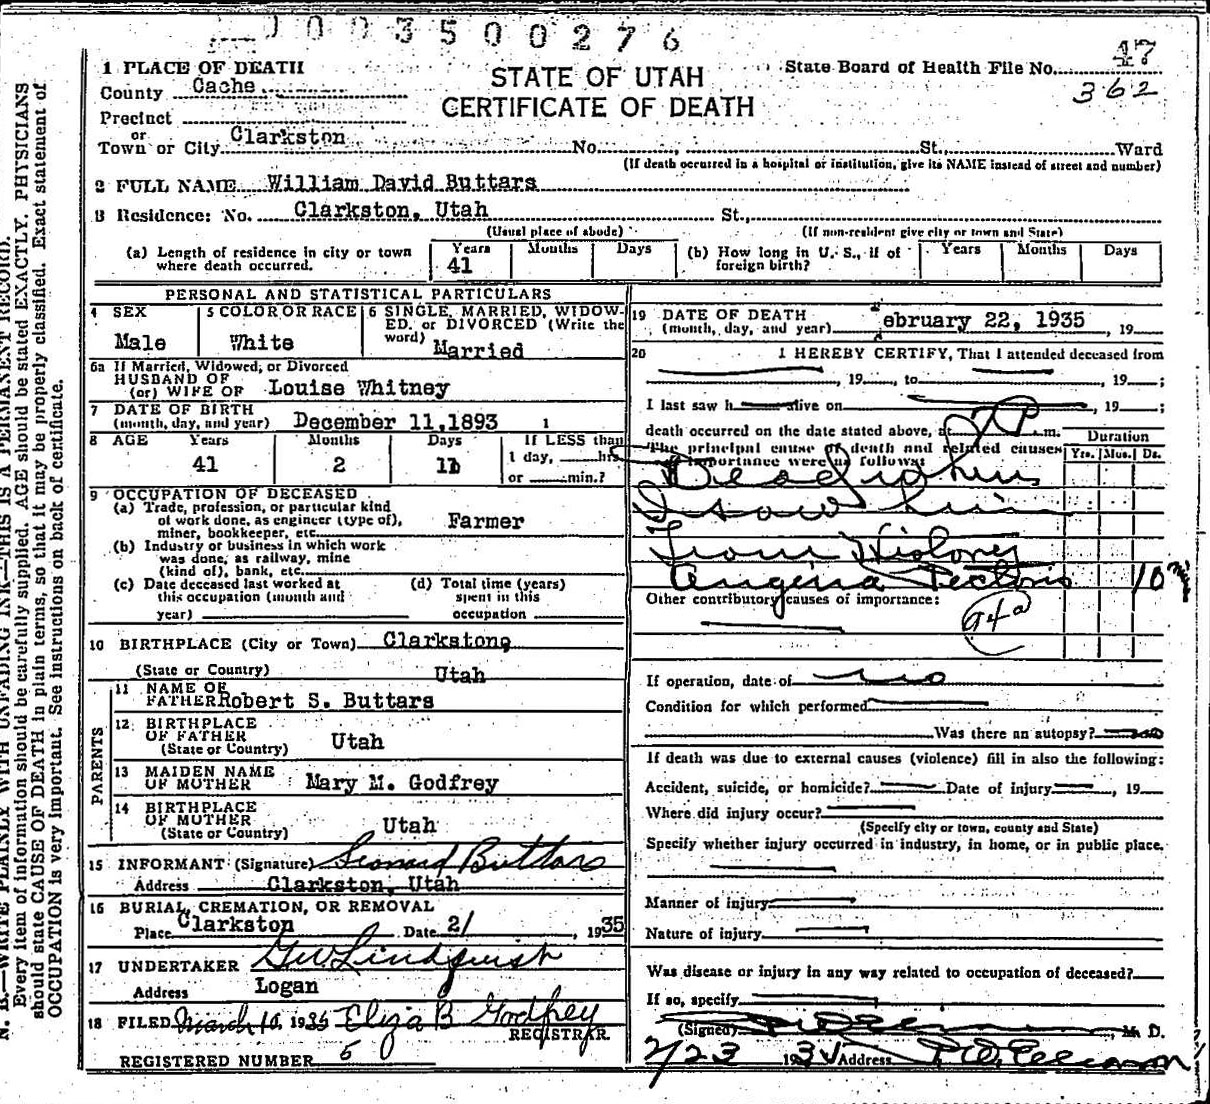 003500276
1 PLACE OF DEATH
STATE OF UTAH
CERTIFICATE OF DEATH
State Board of Health File No. 47
362
County Cache
Precinct
or
Town or City Clarkston No. St., Ward
(If death occurred in a hospital or institution, give its NAME instead of street and number)
2 FULL NAME William David Buttars
3 Residence: No. Clarkston, Utah St.,
(Usual place of abode) (If non-resident give city or town and State)
(a) Length of residence in city or town where death occurred. Years 41 Months Days (b) How long in U. S., if of foreign birth? Years Months Days
PERSONAL AND STATISTICAL PARTICULARS
4 SEX Male
5 COLOR OR RACE White
6 SINGLE, MARRIED, WIDOWED, or DIVORCED (Write the word) Married
6a If Married, Widowed, or Divorced
HUSBAND OF
(or) WIFE OF Louise Whitney
7 DATE OF BIRTH
(month, day, and year) December 11, 1893 1
8 AGE Years 41 Months 2 Days 11 If LESS than 1 day, hrs. or min.?
9 OCCUPATION OF DECEASED
(a) Trade, profession, or particular kind of work done, as engineer (type of), miner, bookkeeper, etc. Farmer
(b) Industry or business in which work was done, as railway, mine (kind of), bank, etc.
(c) Date deceased last worked at this occupation (month and year)
(d) Total time (years) spent in this occupation
10 BIRTHPLACE (City or Town) Clarkston
(State or Country) Utah
PARENTS
11 NAME OF FATHER Robert S. Buttars
12 BIRTHPLACE OF FATHER
(State or Country) Utah
13 MAIDEN NAME OF MOTHER Mary M. Godfrey
14 BIRTHPLACE OF MOTHER
(State or Country) Utah
15 INFORMANT (Signature) Leonard Buttars
Address Clarkston, Utah
16 BURIAL, CREMATION, OR REMOVAL
Place Clarkston Date 2/ , 1935
17 UNDERTAKER Lindquist
Address Logan
18 FILED March 10, 1935 Eliza B Godfrey
REGISTRAR
REGISTERED NUMBER 5
19 DATE OF DEATH
(month, day, and year) ebruary 22, 1935 , 19
20 I HEREBY CERTIFY, That I attended deceased from
, 19 , to , 19 ;
I last saw h alive on , 19 ;
death occurred on the date stated above, at 7 P m.
The principal cause of death and related causes of importance were as follows:
Duration
Yrs. Mos. Ds.
Dead when
I saw him
From History
Angina Pectoris 10 min
Other contributory causes of importance:
94a
If operation, date of no
Condition for which performed
Was there an autopsy? no
If death was due to external causes (violence) fill in also the following:
Accident, suicide, or homicide? Date of injury , 19
Where did injury occur?
(Specify city or town, county and State)
Specify whether injury occurred in industry, in home, or in public place.
Manner of injury
Nature of injury
Was disease or injury in any way related to occupation of deceased?
If so, specify
(Signed) , M. D.
2/23 193 Address
N. B.—WRITE PLAINLY WITH UNFADING INK—THIS IS A PERMANENT RECORD.
Every item of information should be carefully supplied. AGE should be stated EXACTLY. PHYSICIANS
should state CAUSE OF DEATH in plain terms, so that it may be properly classified. Exact statement of
OCCUPATION is very important. See instructions on back of certificate.